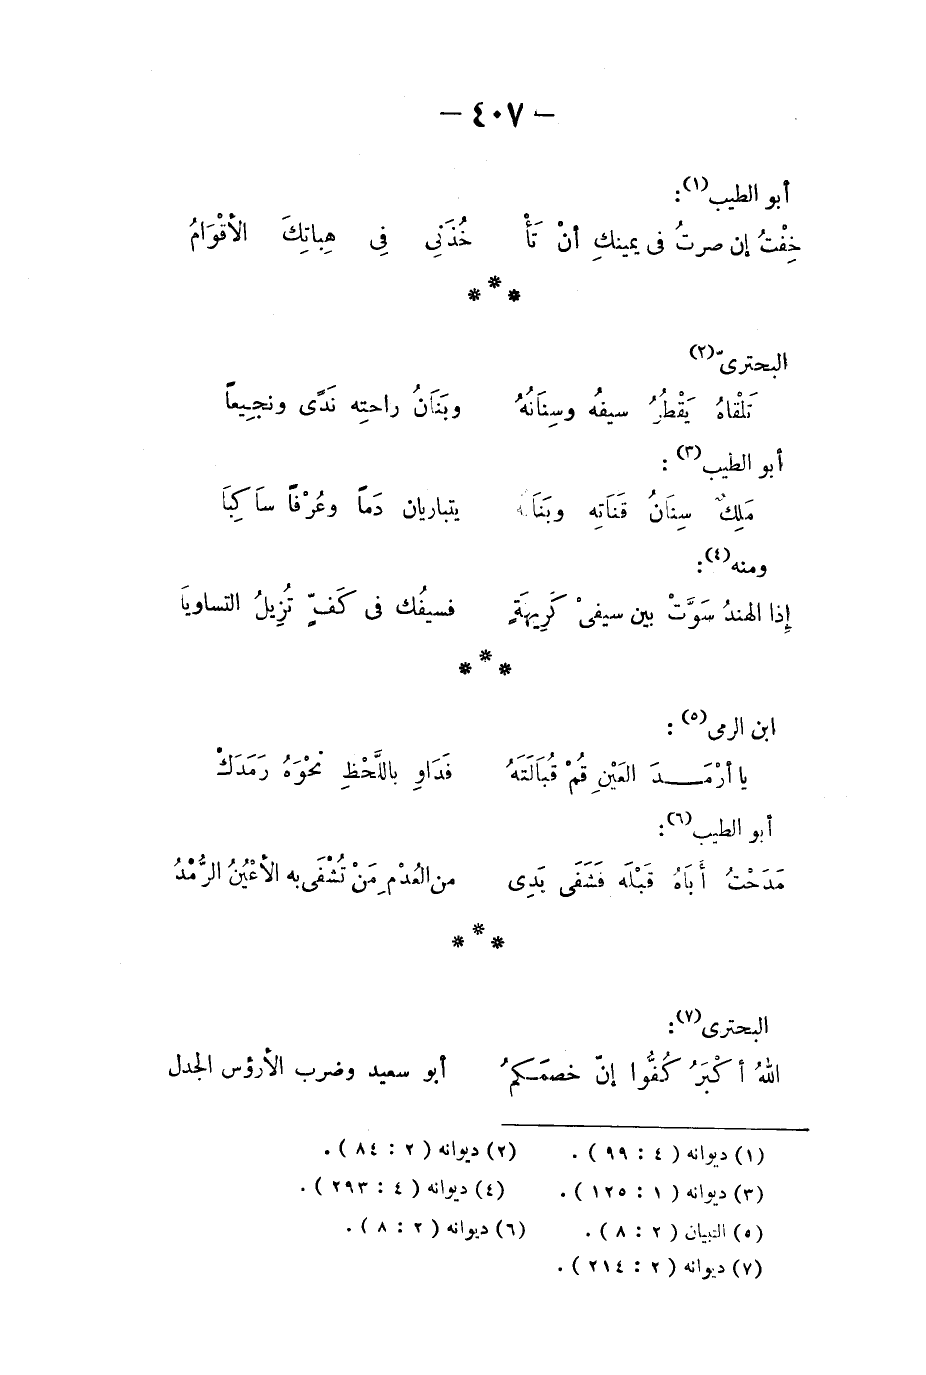 — ٤٠٧ —
أبو الطيب(١):
خِفْتُ إن صرتُ فى يمينكِ أنْ تَأْ خُذَنِى فِى هِباتِكَ الأقْوَامُ
* * *
البحترىّ(٢)
تَلْقاهُ يَقْطُرُ سيفُه وسِنَانُهُ وبَنَانُ راحتِه نَدًى ونجيعاً
أبو الطيب(٣) :
مَلِكٌ سِنَانُ قَنَاتِه وبَنَانُه يتباريان دَماً وعُرْفاً سَاكِبَا
ومنه(٤):
إذا الهندُ سَوَّتْ بين سيفىْ كَرِيهَةٍ فسيفُك فى كَفٍّ تُزِيلُ التساويَا
* * *
ابن الرمى(٥) :
يا أرْمَــدَ العَيْنِ قُمْ قُبَالَتَهُ فَدَاوِ باللَّحْظِ نحْوَهُ رَمَدَكْ
أبو الطيب(٦):
مَدَحْتُ أَبَاهُ قَبْلَه فَشَفَى يَدِى من العُدْمِ مَنْ تُشْفَى به الأعْيُنُ الرُّمْدُ
* * *
البحترى(٧):
اللهُ أكْبَرُ كُفُّوا إنّ خصمَـكمُ أبو سعيد وضرب الأرؤس الجدل
(١) ديوانه ( ٤ : ٩٩ ) . (٢) ديوانه ( ٢ : ٨٤ ) .
(٣) ديوانه ( ١ : ١٢٥ ) . (٤) ديوانه ( ٤ : ٢٩٣ ) .
(٥) التبيان ( ٢ : ٨ ) . (٦) ديوانه ( ٢ : ٨ ) .
(٧) ديوانه ( ٢ : ٢١٤ ) .